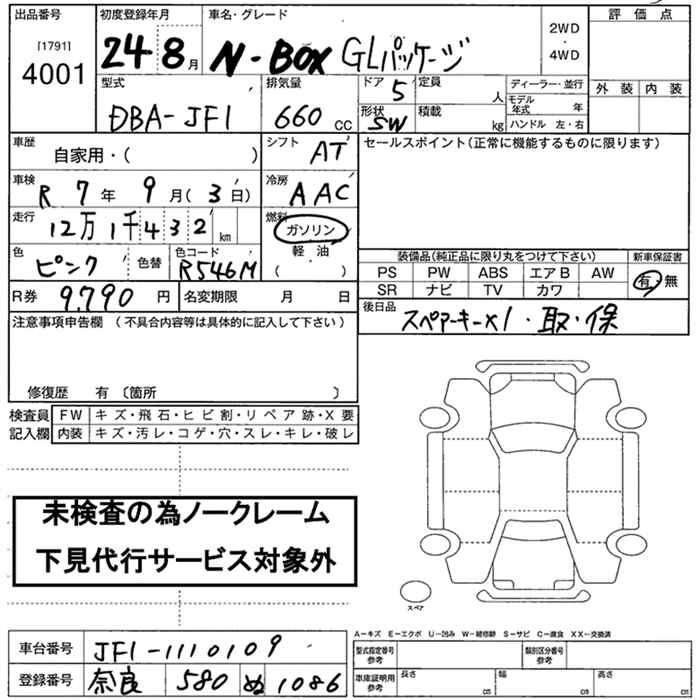 出品番号 初度登録年月 車名・グレード 2WD ・ 4WD 評価点
[1791] 4001 24 8月 N-BOX GLパッケージ
外装 内装
型式 排気量 ドア 5 定員 人 ディーラー・並行
DBA-JF1 660 CC 形状 SW 積載 kg モデル年式 年
ハンドル 左・右
車歴 自家用・( ) シフト AT セールスポイント(正常に機能するものに限ります)
車検 R7年9月(3日) 冷房 AAC
走行 12万1千432km 燃料 ガソリン 軽油 ( )
色 ピンク 色替 色コード R546M
装備品(純正品に限り丸をつけて下さい) 新車保証書
PS PW ABS エアB AW 有・無
SR ナビ TV カワ
R券 9,790円 名変期限 月 日
後日品 スペアーキーx1・取・保
注意事項申告欄 (不具合内容等は具体的に記入して下さい)
修復歴 有 〔箇所 〕
検査員 FW キズ・飛石・ヒビ割・リペア跡・X要
記入欄 内装 キズ・汚レ・コゲ・穴・スレ・キレ・破レ
未検査の為ノークレーム
下見代行サービス対象外
スペア
A－キズ E－エクボ U－凹み W－補修跡 S－サビ C－腐食 XX－交換済
車台番号 JF1-1110109
型式指定番号 参考 類別区分番号 参考
登録番号 奈良 580 ぬ 1086
車庫証明用 参考 長さ cm 幅 cm 高さ cm